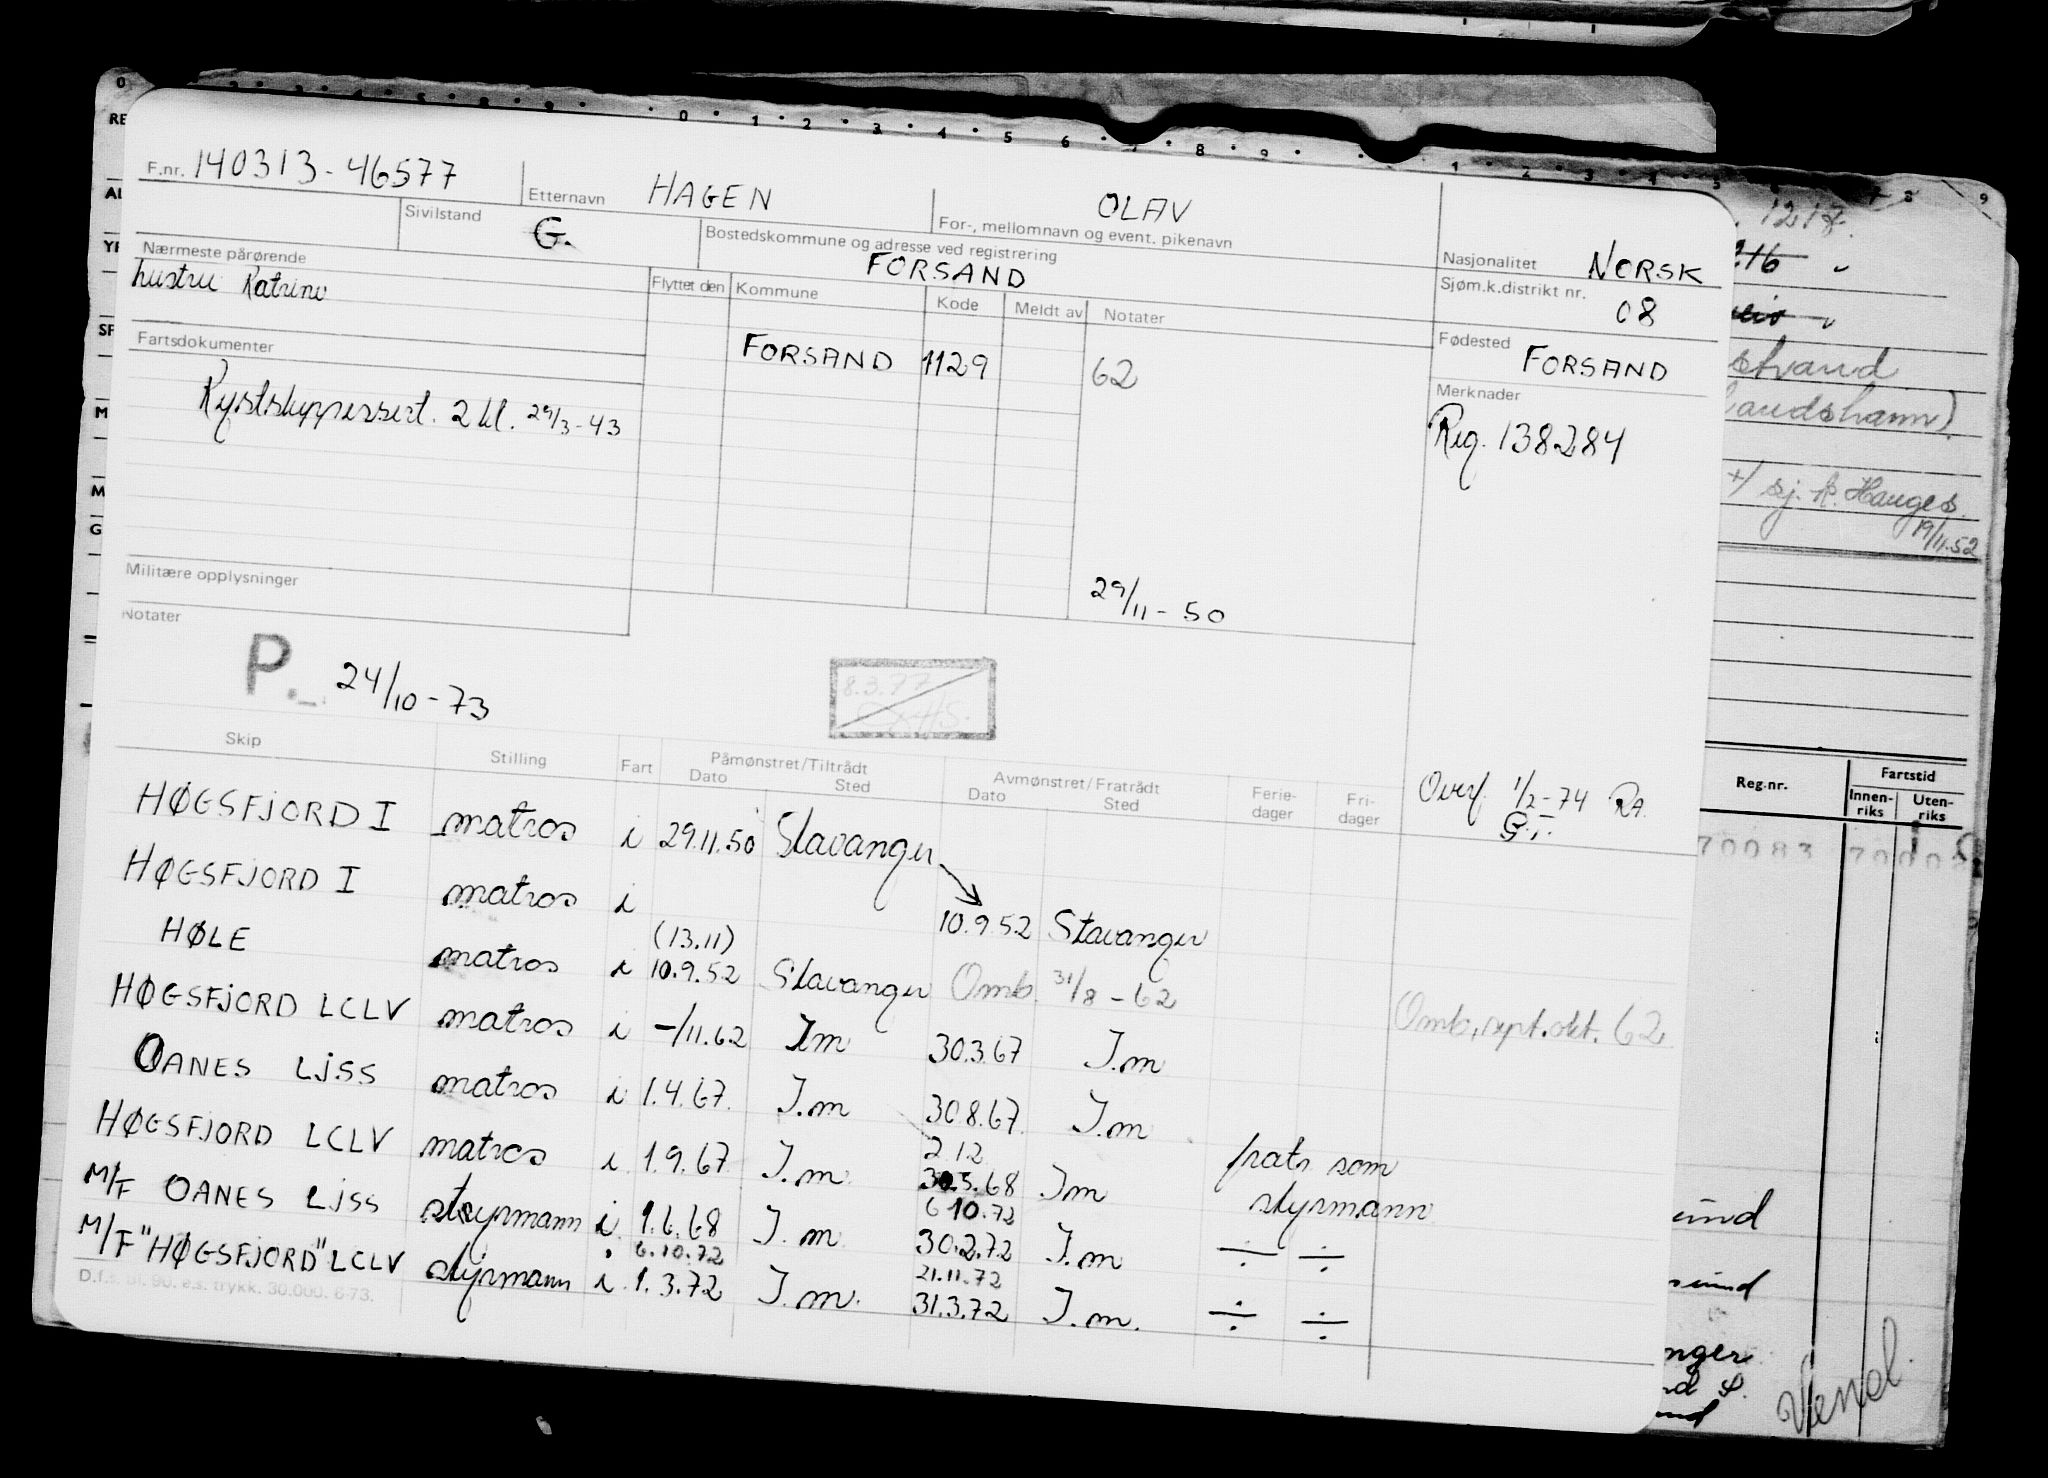 F.nr. 140313-46577 Etternavn HAGEN OLAV
For-, mellomnavn og event. pikenavn
Sivilstand G.
Bostedskommune og adresse ved registrering
FORSAND
Nasjonalitet NORSK
Nærmeste pårørende
hustru Katrine
Flyttet den Kommune Kode Meldt av Notater
Sjøm.k.distrikt nr. 08
Fartsdokumenter
FORSAND 1129 62
Fødested FORSAND
Kystskippersert. 2 kl. 29/3-43
Merknader
Reg. 138284
Militære opplysninger
29/11-50
Notater
P. 24/10-73
8.3.77
Skip Stilling Fart Påmønstret/Tiltrådt Avmønstret/Fratrådt Ferie-dager Fri-dager
Dato Sted Dato Sted
Overf. 1/2-74 RA.
G.T.
HØGSFJORD I matros i 29.11.50 Stavanger
HØGSFJORD I matros i 10.9.52 Stavanger
(13.11)
HØLE matros i 10.9.52 Stavanger Omb. 31/8-62
Omb, sept. okt. 62
HØGSFJORD LCLV matros i -/11.62 I.m 30.3.67 I.m
OANES LJSS matros i 1.4.67. I.m 30.8.67. I.m
2.12
HØGSFJORD LCLV matros i 1.9.67 I.m 30.5.68 I.m frats som
styrmann
6.10.72
M/F OANES LJSS styrmann i 1.6.68 I.m 30.2.72 I.m ÷ ÷
6.10.72 21.11.72
M/F "HØGSFJORD" LCLV styrmann i 1.3.72 I.m. 31.3.72 I.m. ÷ ÷
D.f.s. bl. 90. e.s. trykk. 30.000. 6-73.
1217.
216
strand
sj. A. Hauges
19/11.52
Reg.nr. Fartstid
Innen-riks Uten-riks
70083
sund
sund
nger
Vend